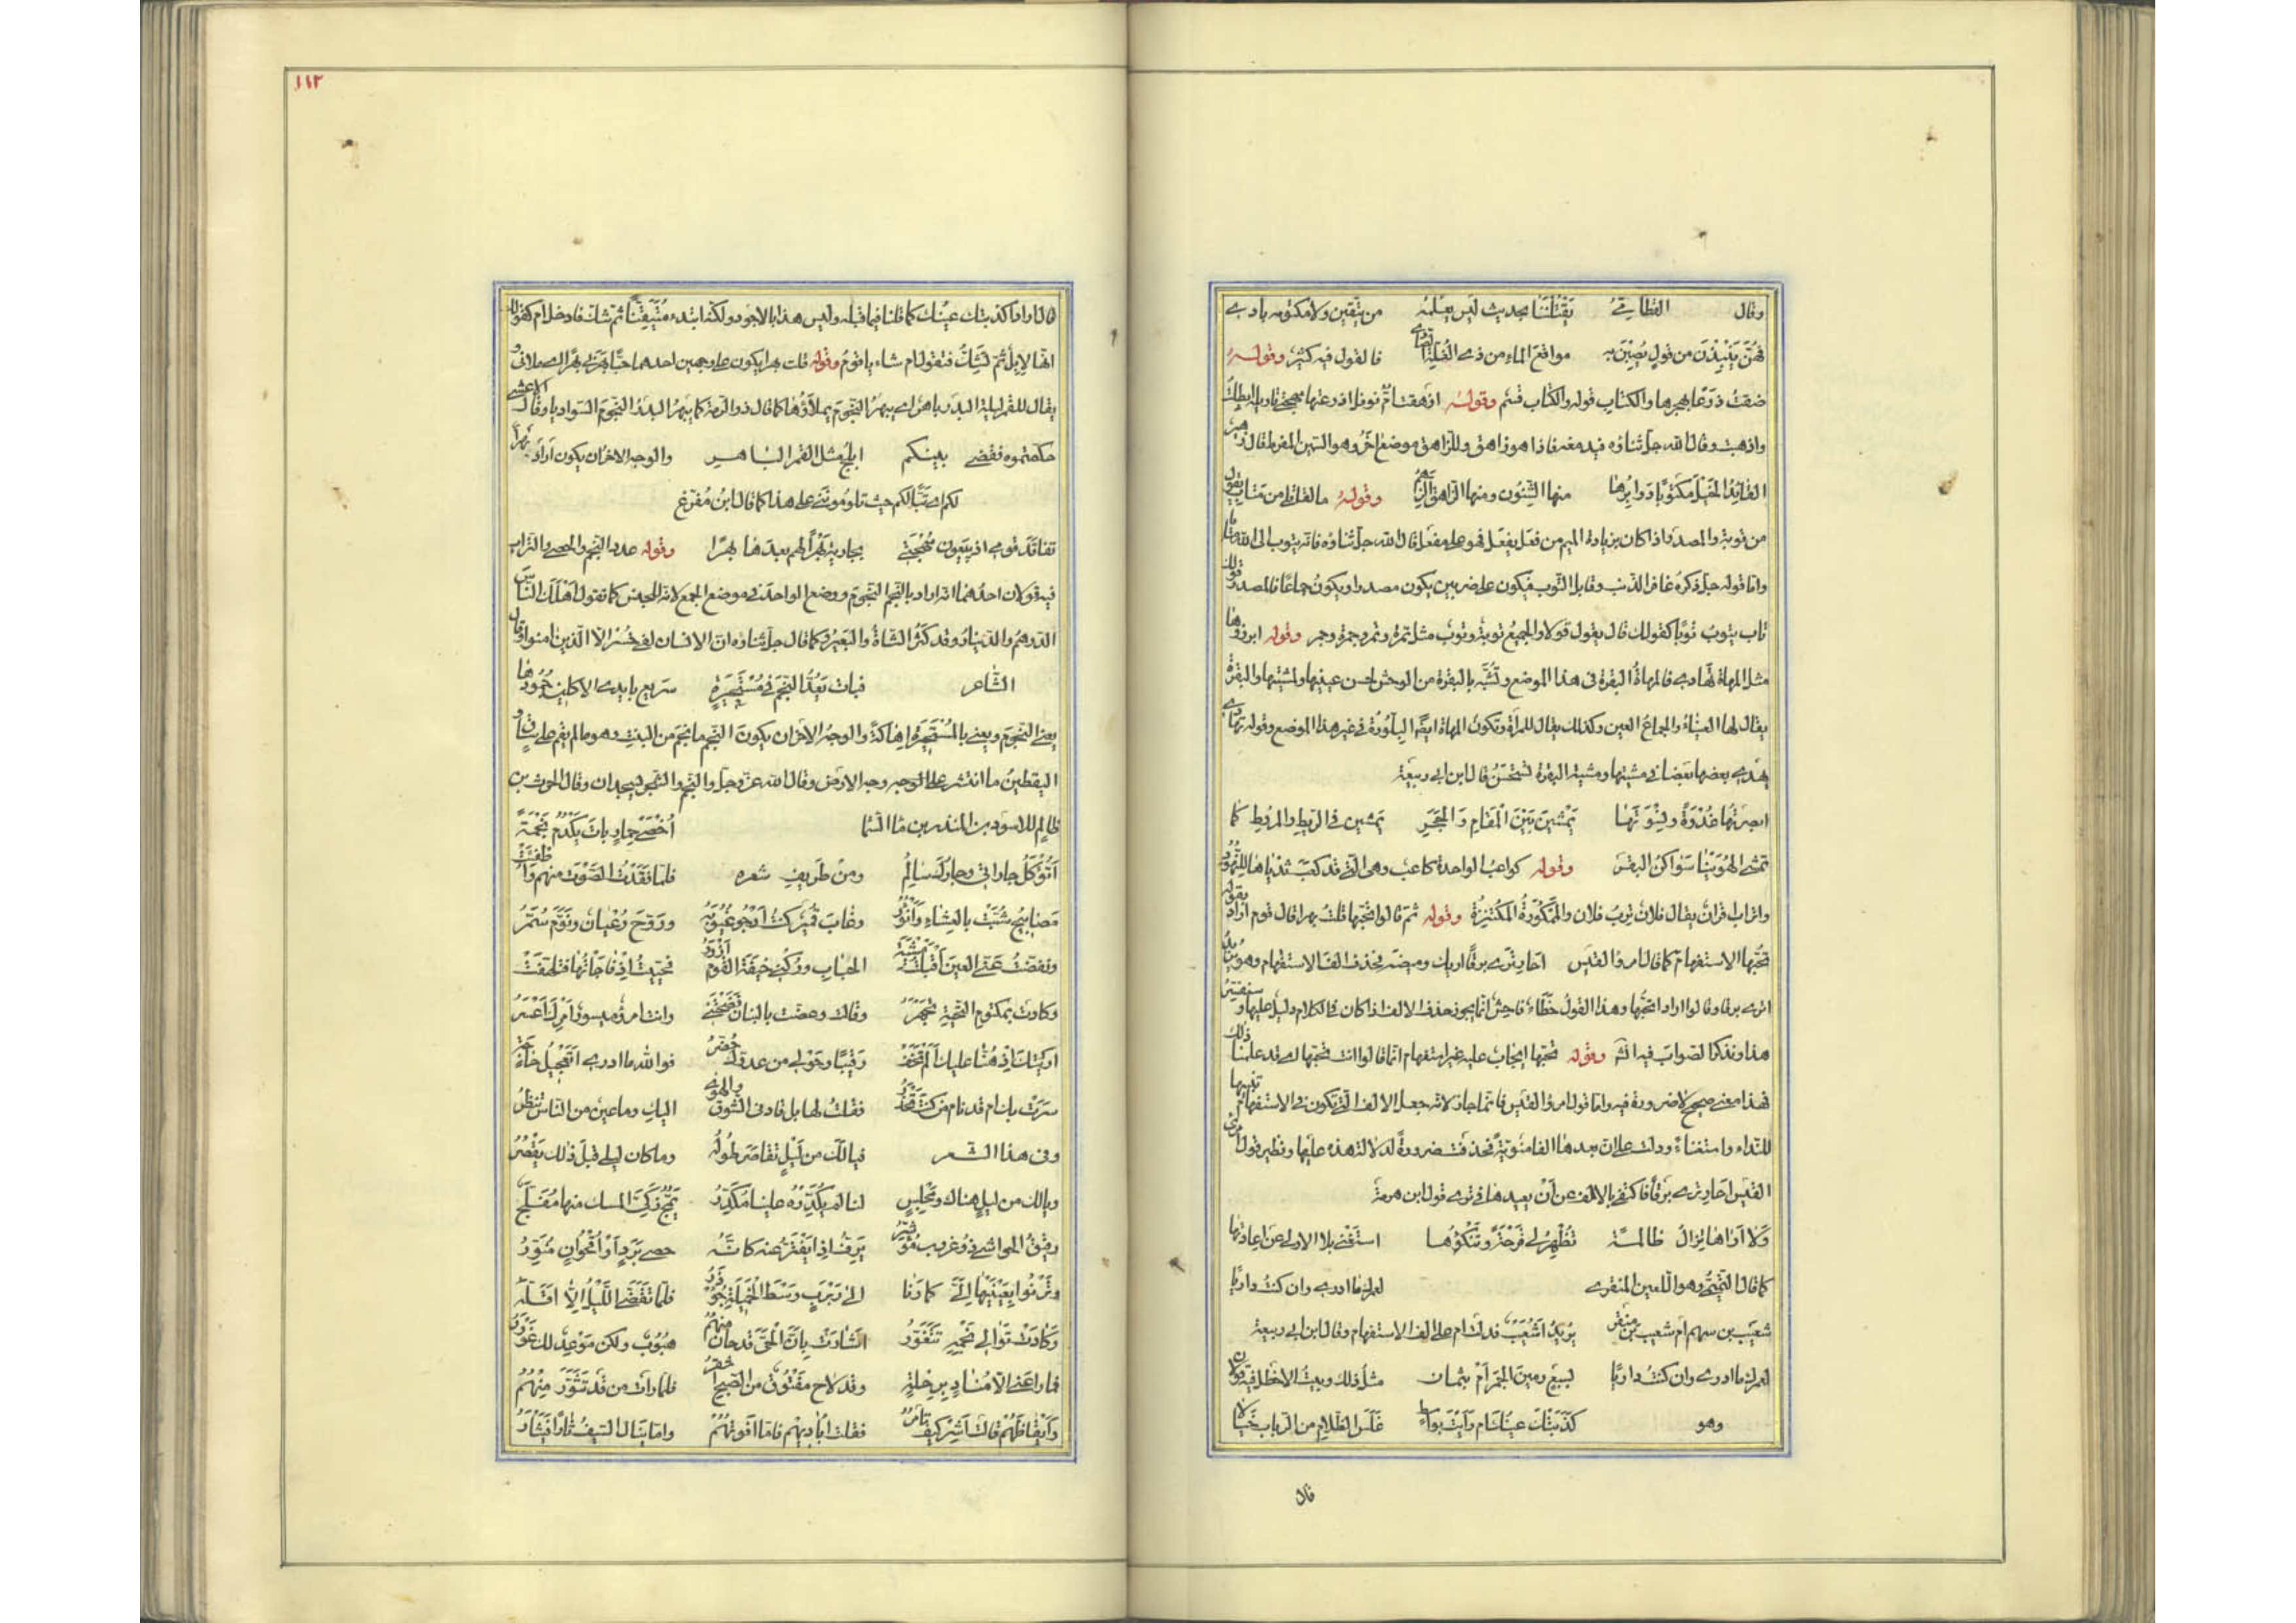 وقال القطامي يقتلننا بحديث ليس يعلمه من يتقين ولا مكنونه بادي
فهن ينبذن من قول يصبن به مواقع الماء من ذي الغلة الصادي فالقول فيه كثير وقوله
ضقت ذرعا بهجرها والكتاب قوله والكتاب قسم وقوله ازهقت ام نوفل اذ دعتها مهجتي تاويله ابطلت
واذهبت وقال الله جل ثناؤه فيدمغه فاذا هو زاهق وللزاهق موضع آخر وهو السمين المفرط قال زهير
القائد الخيل منكوبا دوابرها منها الشنون ومنها الزاهق الزهم وقوله ما لقاتلي من متاب يقول
من توبة والمصدر اذا كان بزيادة الميم من فعل يفعل فهو على مفعل قال الله جل ثناؤه فانه يتوب الى الله متابا
واما قوله جل ذكره غافر الذنب وقابل التوب فيكون على ضربين يكون مصدرا ويكون جماعا فالمصدر قولك
تاب يتوب توبا كقولك قال يقول قولا والجميع توبة وتوب مثل تمرة وتمر وجمرة وجمر وقوله ابرزوها
مثل المهاة تهادى فالمهاة البقرة في هذا الموضع وتشبه بالبقرة من الوحش لحسن عينيها ولمشيتها والبقرة
يقال لها العيناء والجماع العين وكذلك يقال للمرأة وتكون المهاة ايضا البلورة في غير هذا الموضع وقوله تهادى
يهدي بعضها بعضا في مشيتها ومشية البقرة تستحسن قال ابن ابي ربيعة
ابصرتها غدوة ونسوتها يمشين بين المقام والحجر يمشين في الريط والمروط كما
تمشي الهوينا سواكن البقر وقوله كواعب الواحدة كاعب وهي التي قد كعب ثدياها للنهود
واتراب اقران يقال فلان ترب فلان والممكورة المكتنزة وقوله ثم قالوا تحبها قلت بهرا قال قوم اراد بقوله
تحبها الاستفهام كما قال امرؤ القيس احار ترى برقا اريك وميضه فحذف الف الاستفهام وهو يريد
اترى برقا وقالوا اراد اتحبها وهذا القول خطاء فاحش انما يجوز حذف الالف اذا كان في الكلام دليل عليها وسنفسر
هذا ونذكر الصواب فيه وقوله تحبها ايجاب عليه غير استفهام انما قالوا انت تحبها اي قد علمنا ذلك
فهذا معنى صحيح لا ضرورة فيه واما قول امرؤ القيس فانما جاز لانه جعل الالف التي تكون في الاستفهام تنبيها
للنداء واستغناء ودلت على ان بعدها الفا منوية فحذفت ضرورة لدلالة هذه عليها ونظير قول امرئ
القيس احار ترى برقا فاكتفى بالالف عن ان يعيدها في ترى قول ابن هرمة
ولا اراها تزال ظالمة تظهر لي قرحة وتنكؤها استغنى بلا الاولى عن اعادتها
كما قال التميمي وهو اللعين المنقري لعمرك ما ادري وان كنت داريا
شعيب بن سهم ام شعيب بن منقر يريد اشعيب فدلت ام على الف الاستفهام وقال ابن ابي ربيعة
لعمرك ما ادري وان كنت داريا بسبع رمين الجمر ام بثمان مثل ذلك وبيت الاخطل فيه قولان
وهو كذبتك عينك ام رأيت بواسط غلس الظلام من الرباب خيالا
قال
١١٢
قال اراد اكذبتك عينك كما قلنا فيما قبله وليس هذا بالاجود ولكنه ابتدء متيقنا ثم شك فادخل ام كقولك
انها لابل ثم تشك فتقول ام شاء يا قوم وقوله قلت بهرا يكون على وجهين احدهما حبا يبهرني بهرا اي يملاني و
يقال للقمر ليلة البدر باهر اي يبهر النجوم يملاؤها كما قال ذو الرمة كما يبهر البدر النجوم السواريا وقال الاعشى
حكمتموه فقضى بينكم ابلج مثل القمر الباهر والوجه الآخر ان يكون اراد بهرا
لكم اي تبا لكم حيث تلوموننى على هذا كما قال ابن مفرغ
تفاقد قومي اذ يبيعون مهجتي بجارية بهرا لهم بعدها بهرا وقوله عدد النجم والحصى والتراب
فيه قولان احدهما انه اراد بالنجم النجوم ووضع الواحد في موضع الجمع لانه للجنس كما تقول اهلك الناس
الدرهم والدينار وقد كثر الشاة والبعير وكما قال جل ثناؤه ان الانسان لفي خسر الا الذين امنوا وقال
الشاعر فبات تعد النجم في مستحيرة سريع بايدي الاكلين جمودها
يعني النجوم ويعني بالمستحيرة اهالة والوجه الآخر ان يكون النجم ما نجم من النبت وهو ما لم يقم على ساق و
اليقطين ما انتشر على الوجه وجه الارض وقال الله عز وجل والنجم والشجر يسجدان وقال الحرث بن
ظالم للاسود بن المنذر بن ماء السما اخصي حمار بات يكدم نجمة
اتؤكل جاراتي وجارك سالم ومن طريف شعره فلما فقدت الصوت منهم واطفئت
مصابيح شبت بالعشاء وانؤر وغاب قمير كنت ارجو غيوبه وروح رعيان ونوم سمر
ونفضت عني العين اقبلت مشية الحباب وركني خيفة القوم ازور فحييت اذ فاجأتها فتلهفت
وكادت بمكتوم التحية تجهر وقالت وعضت بالبنان فضحتني وانت امرؤ ميسور امرك اعسر
اريتك اذ هنا عليك الم تخف رقيبا وحولي من عدوك حضر فوالله ما ادري اتعجيل حاجة
سرت بك ام قد نام من كنت تحذر فقلت لها بل قادني الشوق والهوى اليك وما عين من الناس تنظر
وفي هذا الشعر فيالك من ليل تقاصر طوله وما كان ليلي قبل ذلك يقصر
ويالك من ليل هناك ومجلس لنا لم يكدره علينا مكدر يمج ذكي المسك منها مفلج
رقيق الحواشي ذو غروب مؤشر يرف اذا يفتر عنه كانه حصى برد او اقحوان منور
وترنوا بعينيها الي كما رنا الى ربرب وسط الخميلة جؤذر فلما تقضى الليل الا اقله
وكادت توالي نجمه تتغور اشارت بان الحي قد حان منهم هبوب ولكن موعد لك عزور
فما راعني الا مناد برحلة وقد لاح مفتوق من الصبح اشقر فلما رات من قد تثور منهم
وايقاظهم قالت اشر كيف تامر فقلت اباديهم فاما افوتهم واما ينال السيف ثارا فيثأر